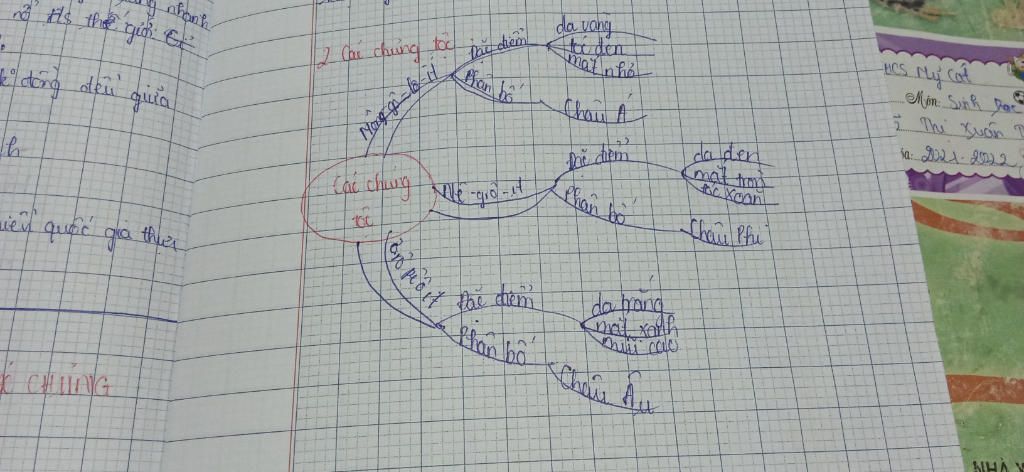 nhanh
thế giới
đồng đều giữa
quốc gia
CHỦNG
2 Các chủng tộc
Các chủng
tộc
Môn-gô-lô-it
Đặc điểm
da vàng
tóc đen
mắt nhỏ
Phân bố
Châu Á
Nê-grô-it
Đặc điểm
da đen
mắt tròn
tóc xoăn
Phân bố
Châu Phi
Ơ rô pê ô it
Đặc điểm
da trắng
mắt xanh
mũi cao
Phân bố
Châu Âu
HCS Mỹ Cát
Môn: Sinh học
Thị Xuân
2021-2022
NHÀ